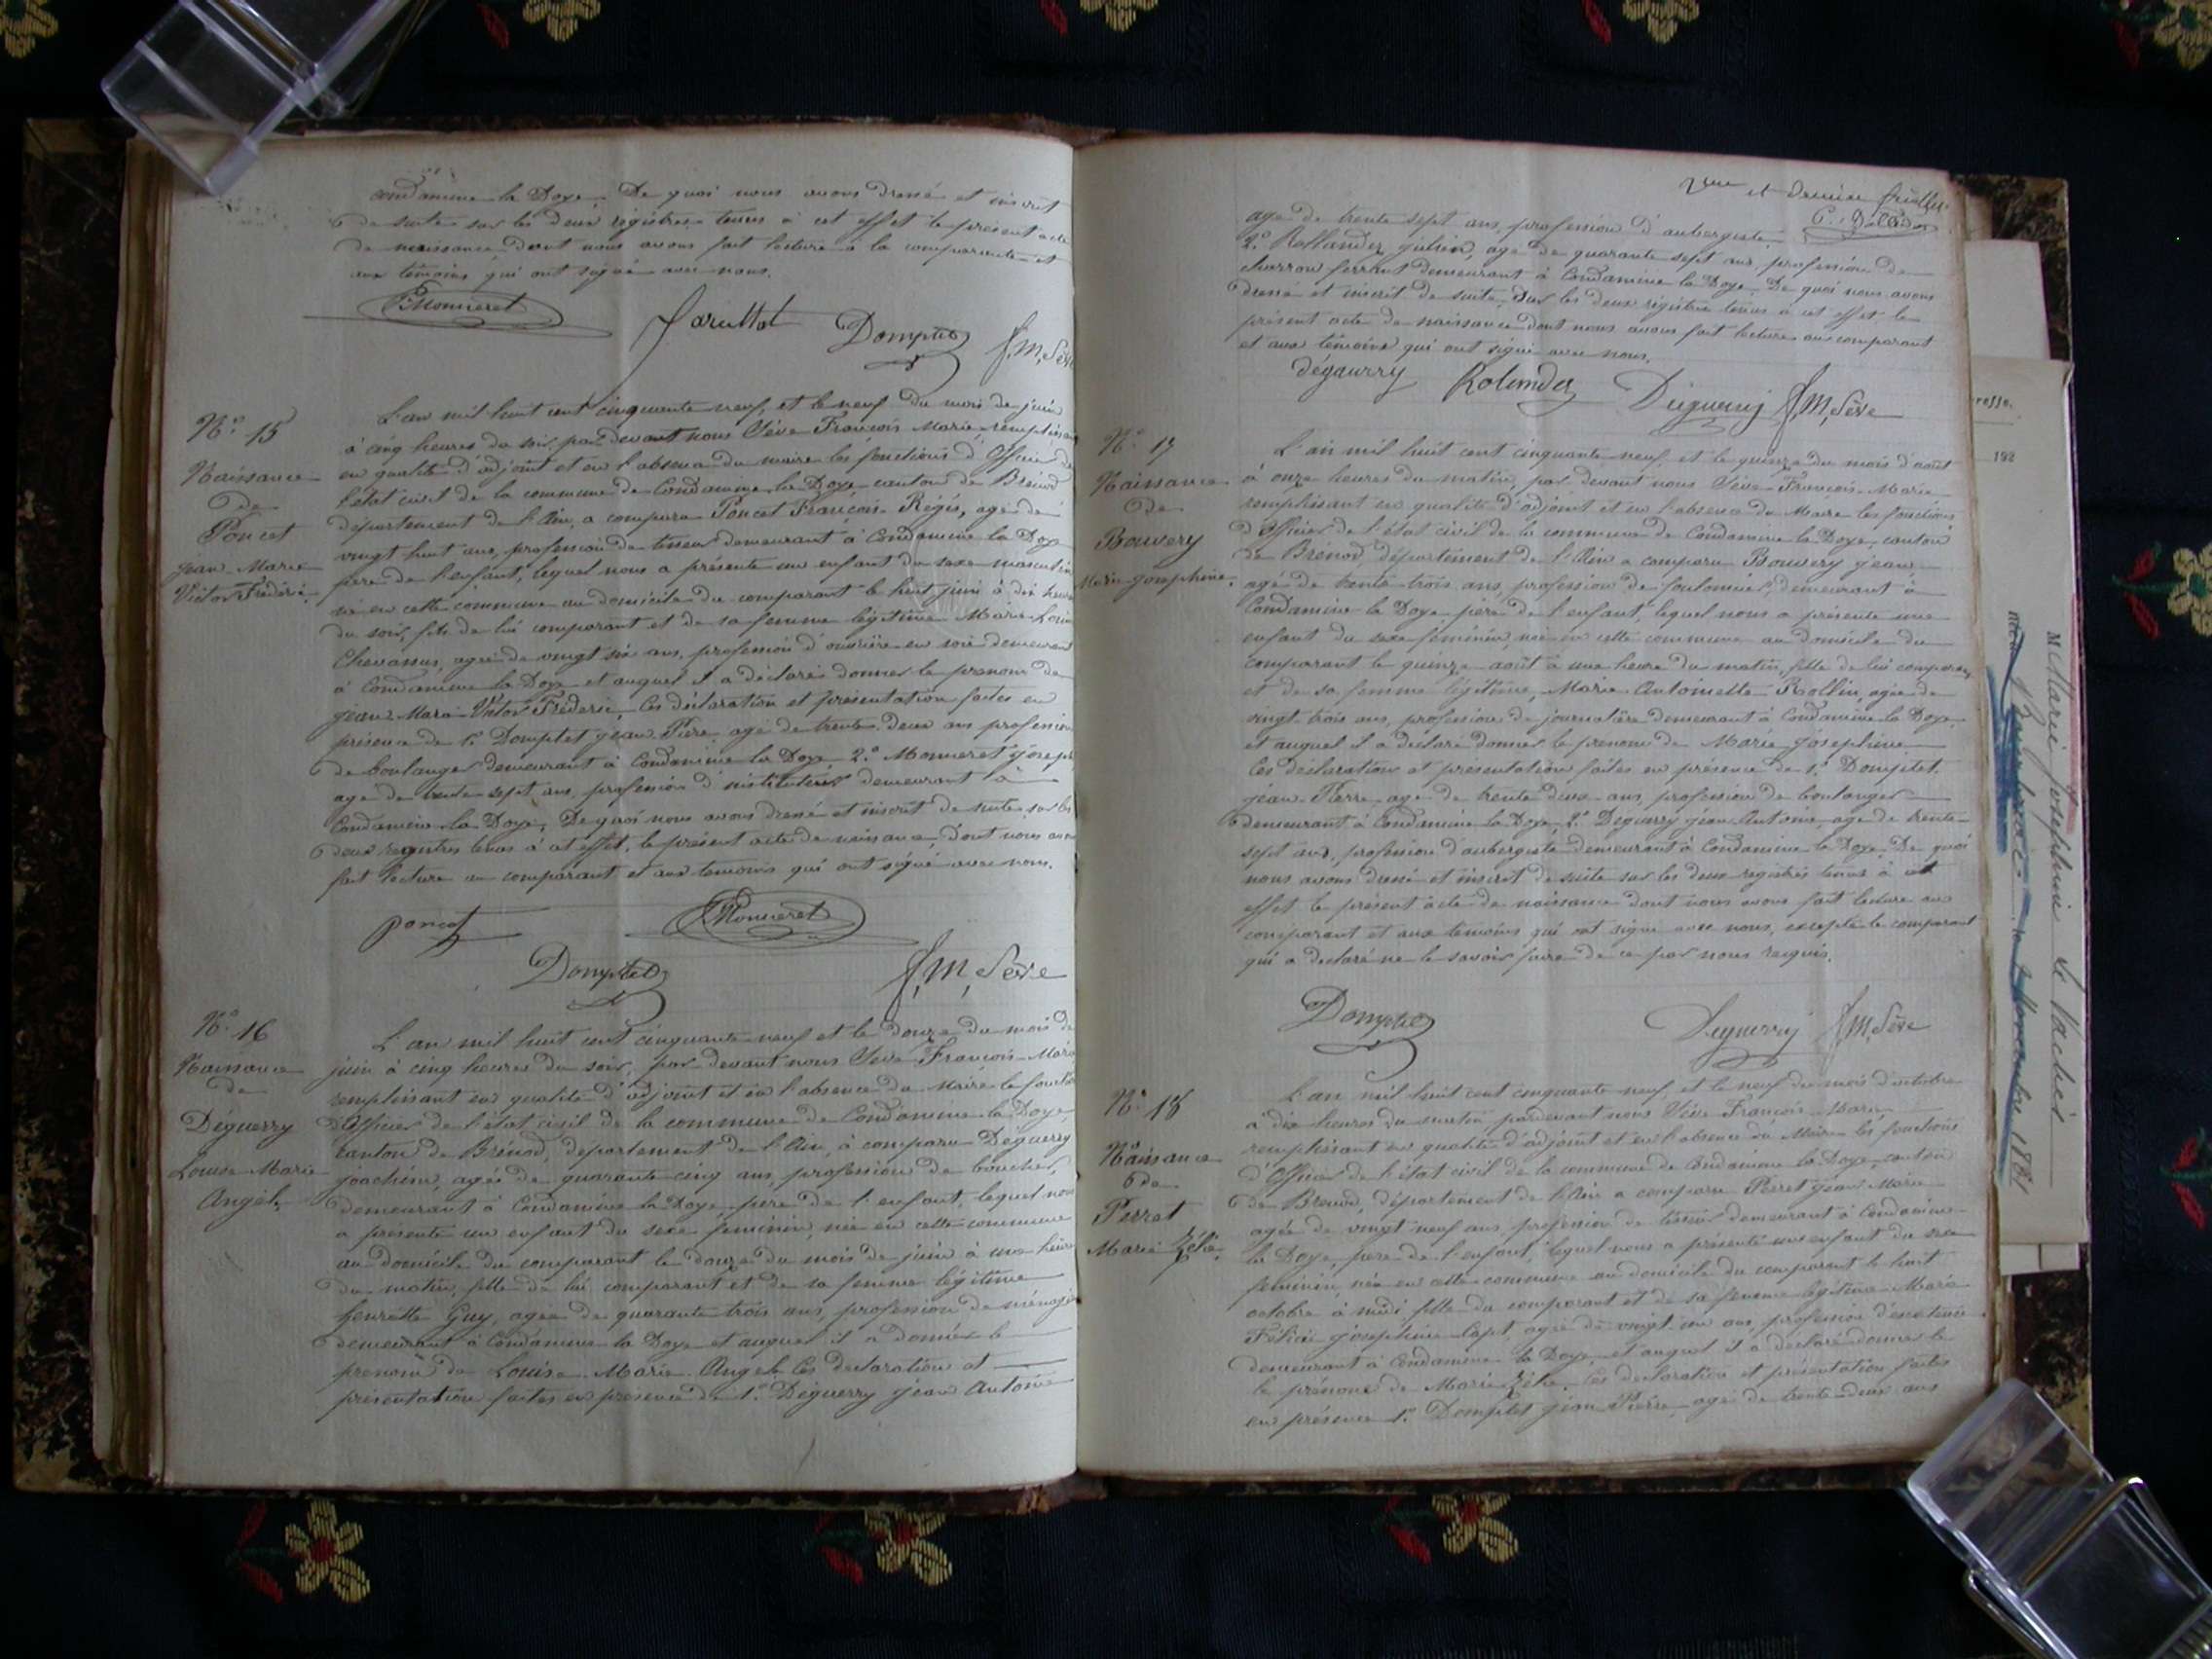 Condamine la Doye. De quoi nous avons dressé et inscrit
de suite sur les deux régistres tenus à cet effet le présent acte
de naissance dont nous avons fait lecture à la comparante et
aux témoins qui ont signé avec nous.
Monneret
Dompted
J.M. Sève
N° 15
Naissance
De
Poncet
jean Marie
Victor Fréderic
L'an mil huit cent cinquante neuf, et le neuf du mois de juin
à cinq heures du soir, par devant nous Sève François Marie remplissant
en qualité d'adjoint et en l'absence du maire les fonctions d'Officier de
l'état civil de la commune de Condamine la Doye canton de Brénod
département de l'Ain, a comparu Poncet François Régis, agé de
vingt huit ans, profession de tisseur demeurant à Condamine la Doye
père de l'enfant, lequel nous a présenté un enfant du sexe masculin
né en cette commune au domicile du comparant le huit juin à dix heures
du soir, fils de lui comparant et de sa femme légitime Marie Louise
Chevassus, agée de vingt six ans, profession d'ouvrière en soie demeurant
à Condamine la Doye et auquel il a déclaré donner le prenom de
jean Marie Victor Fréderic, Ces déclaration et présentation faites en
présence de 1° Domptet jean Pierre agé de trente deux ans profession
de boulanger demeurant à Condamine la Doye 2° Monneret joseph
agé de trente sept ans, profession d'instituteur demeurant à
Condamine la Doye, De quoi nous avons dressé et inscrit de suite sur les
deux registres tenus à cet effet, le présent acte de naissance, dont nous avons
fait lecture au comparant et aux temoins qui ont signé avec nous.
poncet
Monneret
Dompted
J.M. Sève
N° 16
Naissance
de
Déguerry
Louise Marie
Angèle
L'an mil huit cent cinquante neuf et le douze du mois de
juin à cinq heures du soir, par devant nous Sève François Marie
remplissant en qualité d'adjoint et en l'absence du Maire le fonctions
d'Officier de l'état civil de la commune de Condamine la Doye
canton de Brénod, département de l'Ain, à comparu Déguerry
joachim, agé de quarante cinq ans, profession de boucher,
demeurant à Condamine la Doye, père de l'enfant, lequel nous
a présenté un enfant du sexe feminin, née en cette commune
au domicile du comparant le douze du mois de juin à une heure
du matin, fille de lui comparant et de sa femme légitime
henriette Guy, agée de quarante trois ans, profession de ménagère
demeurant à Condamine la Doye et auquel il a donné le
prenom de Louise Marie Angèle Ces declaration et
présentation faites en présence de 1° Déguerry jean Antoine
2eme et Dernier feuillet
agé de trente sept ans, profession d'aubergiste
2° Rollandez julien, agé de quarante sept ans profession de
charron ferrant demeurant à Condamine la Doye. De quoi nous avons
dressé et inscrit de suite, sur les deux régistres tenus à cet effet le
présent acte de naissance dont nous avons fait lecture au comparant
et aux témoins qui ont signé avec nous.
dégaurry Rolandez Déguerry J.M. Sève
N° 17
Naissance
de
Bouvery
Marie joséphine.
L'an mil huit cent cinquante neuf, et le quinze du mois d'août
à onze heures du matin, par devant nous Sève François Marie
remplissant en qualité d'adjoint et en l'absence du Maire les fonctions
d'Officier de l'état civil de la commune de Condamine la Doye, canton
de Brenod, département de l'Ain a comparu Bouvery jean
agé de trente trois ans, profession de , demeurant à
Condamine la Doye père de l'enfant, lequel nous a présenté une
enfant du sexe féminin, née en cette commune au domicile du
comparant le quinze août à une heure du matin, fille de lui comparant
et de sa femme légitime, Marie Antoinette Rollin, agée de
vingt trois ans, profession de journalière demeurant à Condamine la Doye
et auquel il a déclaré donner le prenom de Marie joséphine
Ces déclaration et présentation faites en présence de 1° Domptet
jean Pierre agé de trente deux ans, profession de boulanger
demeurant à Condamine la Doye, 2° Déguerry jean Antoine, agé de trente
sept ans, profession d'aubergiste demeurant à Condamine la Doye. De quoi
nous avons dressé et inscrit de suite sur les deux registres tenus à cet
effet le présent acte de naissance dont nous avons fait lecture au
comparant et aux temoins qui ont signé avec nous, excepté le comparant
qui a declaré ne le savoir faire de ce par nous requis.
Dompted
Déguerry J.M. Sève
N° 18
Naissance
de
Perret
Marie Zélie
L'an mil huit cent cinquante neuf, et le neuf du mois d'octobre
à dix heures du matin pardevant nous Sève François Marie
remplissant en qualité d'adjoint et en l'absence du Maire les fonctions
d'Officier de l'état civil de la commune de Condamine la Doye, canton
de Brenod, département de l'Ain a comparu Perret jean Marie
agée de vingt neuf ans, profession de tisseur demeurant à Condamine
la Doye, père de l'enfant, lequel nous a présenté une enfant du sexe
feminin, née en cette commune au domicile du comparant le huit
octobre à midi fille du comparant et de sa femme légitime Marie
Félicie joséphine Capt, agée de vingt ans profession
demeurant à Condamine la Doye, et auquel il a déclaré donner le
le prénom de Marie Zélie, Ces declaration et présentation faites
en présence 1° Domptet jean Pierre agé de trente deux ans
resse.
192
M Marie joséphine
novembre 1861